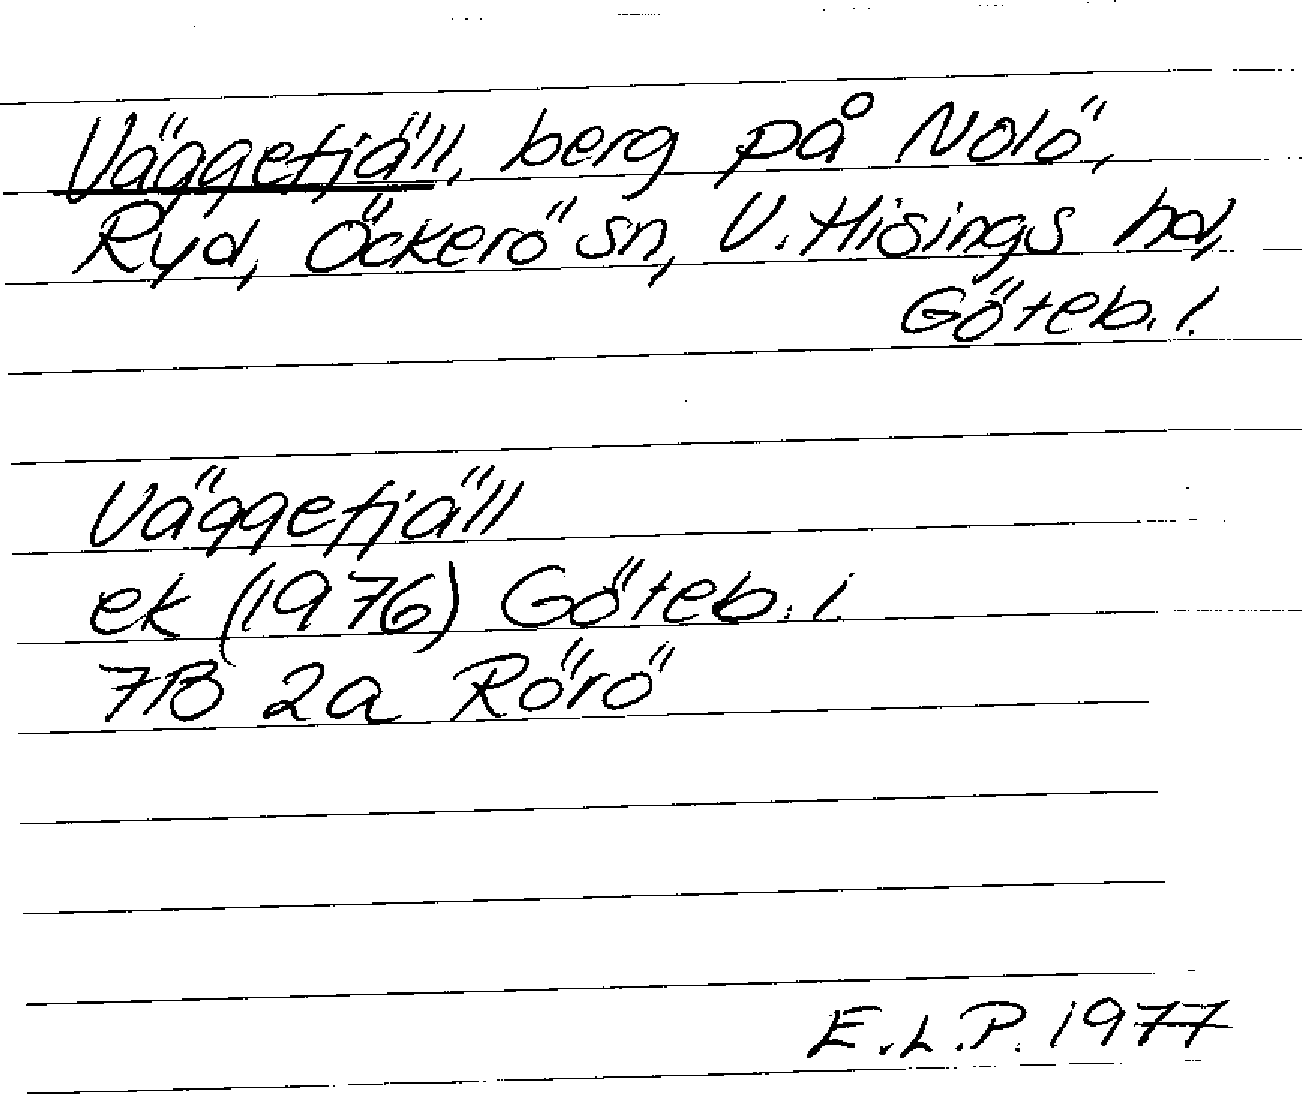 Väggefjäll, berg på Nolö,
Ryd, Öckerö sn, V. Hisings hd,
Göteb. l.
Väggefjäll
ek (1976) Göteb. l.
7B 2a Rörö
E.L.P. 1977